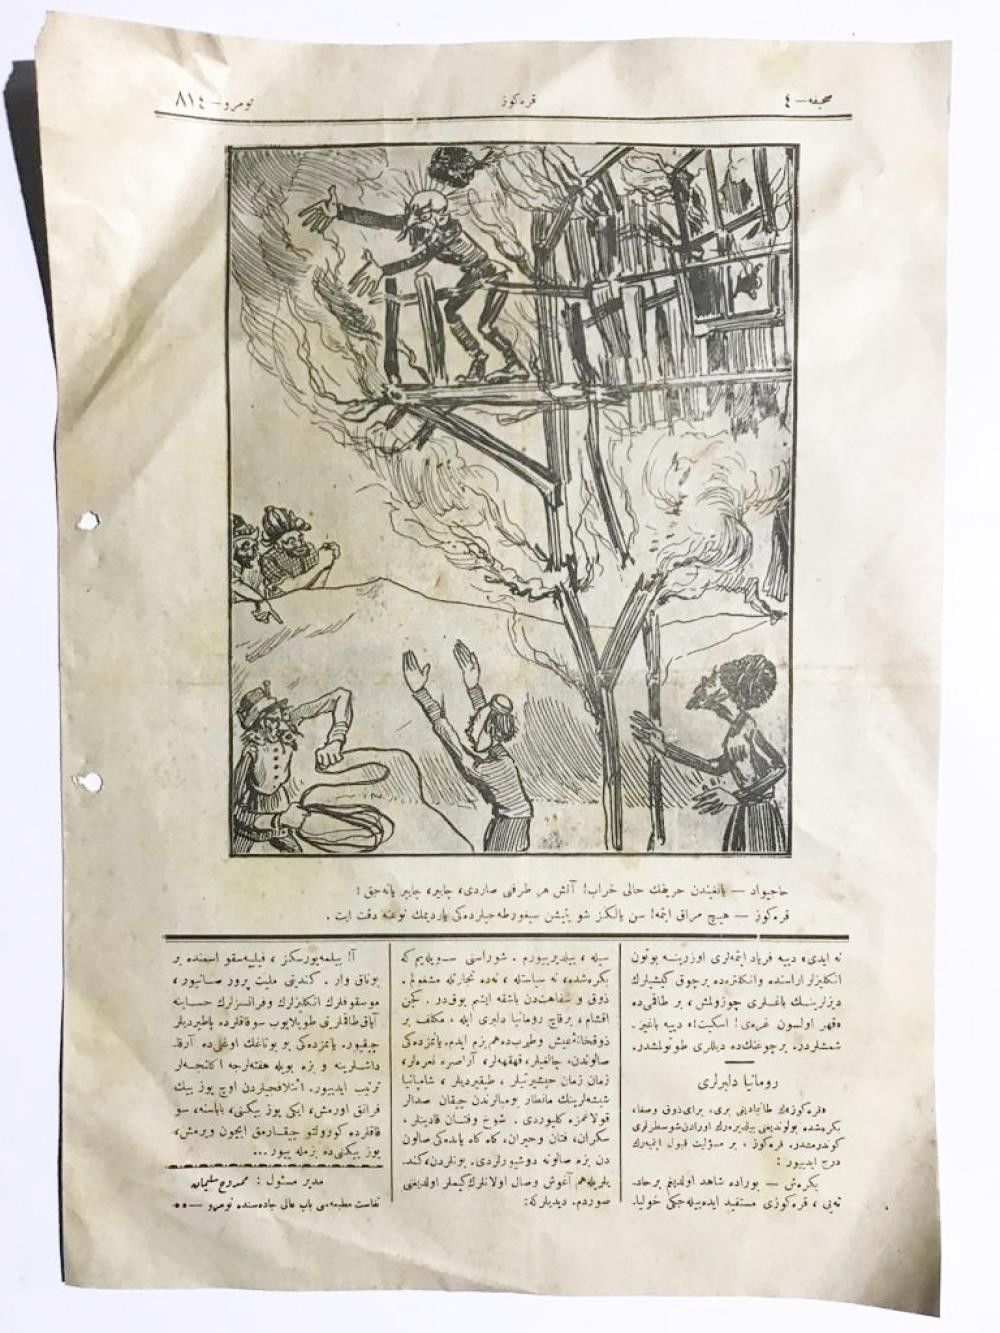 صحیفه — ٤
قره‌كوز
نومرو — ٨١٤
حاجیواد — یانغیندن حریفك حالی خراب! آتش هر طرفی صاردی، چاییر، چاییر یانه‌جق!
قره‌كوز — هیچ مراق ایتمه! سن یالكز شو یتیشن سیغورطه‌جیلرده‌كی یاردیمك نوعنه دقت ایت.
نه ایدی» دییه فریاد ایتمه‌لری اوزرینه بوتون
انكلیزلر آراسنده وانكلتره‌ده برچوق كیشیلرك
دیزلرینك باغلری چوزولمش، بر طاقمی‌ده
«قهر اولسون غره‌ی! اسكیت!» دییه باغیر-
شمشلردر. برچوغنك‌ده دیللری طوتولمشدر.
رومانیا دلبرلری
«قره‌كوز»ك طانیدیغی بری، برای ذوق وصفا،
بكرشده بولوندیغنی بیلدیره‌رك اورادن شو سطرلری
كوندرمشدر. قره‌كوز، بر مسؤلیت قبول ایتمیه‌رك
درج ایدییور:
بكرش — بوراده شاهد اولدیغم برحاد-
ثه‌یی، قره‌كوزی مستفید ایده‌بیله‌جكی خولیا-
سیله، بیلدیرییورم. شوراسنی سویله‌یم كه
بكرشده، نه سیاستله، نه‌ده تجارتله مشغولم.
ذوق و سفاهتدن باشقه ایشم یوقدر. كچن
اقشام، برقاچ رومانیا دلبری ایله، مكلف بر
ذوقخانه‌ده عیش وطرب‌ده‌هم بزم ایدم. یانمزده‌كی
صالوندن، چالغیلر، قهقهه‌لر، آراصره نعره‌لر،
زمان زمان حیشیرتیلر، طیقیردیلر، شامپانیا
شیشه‌لرینك مانطار بومبالرندن چیقان صدالر
قولاغمزه كلیوردی. شوخ وفتان قادینلر،
سكران، فتان وحیران، كاه كاه یانده‌كی صالون
دن بزه صالونه دوشیورلردی. بونلردن، كند-
یلریله‌هم آغوش وصال اولانلرك كیملر اولدیغنی
صوردم. دیدیلركه:
آ! بیلمه‌یورسكز، فیلیپه‌سقو اسمنده بر
بوناق وار. كندینی ملت پرور صانیور،
موسقوفلرك انكلیزلرك وفرانسزلرك حسابنه
آیاق طاقملرینی طوپلایوب سوقاقلرده پاطیردیلر
چیقییور. یانمزده‌كی بو بوناغك اوغلی‌ده آرقا-
داشلرینه و بزه بویله هفته‌لرجه اكلنجه‌لر
ترتیب ایدییور. ائتلافجیلردن اوچ یوز بیك
فرانق اورمش، ایكی یوز بیكنی، باباسنه، سو-
قاقلرده كورولتو چیقارمق ایچون ویرمش،
یوز بیكنی‌ده بزمله ییور...
مدیر مسئول: محمود سلیمان
نفاست مطبعه‌سی باب عالی جاده‌سنده نومرو —